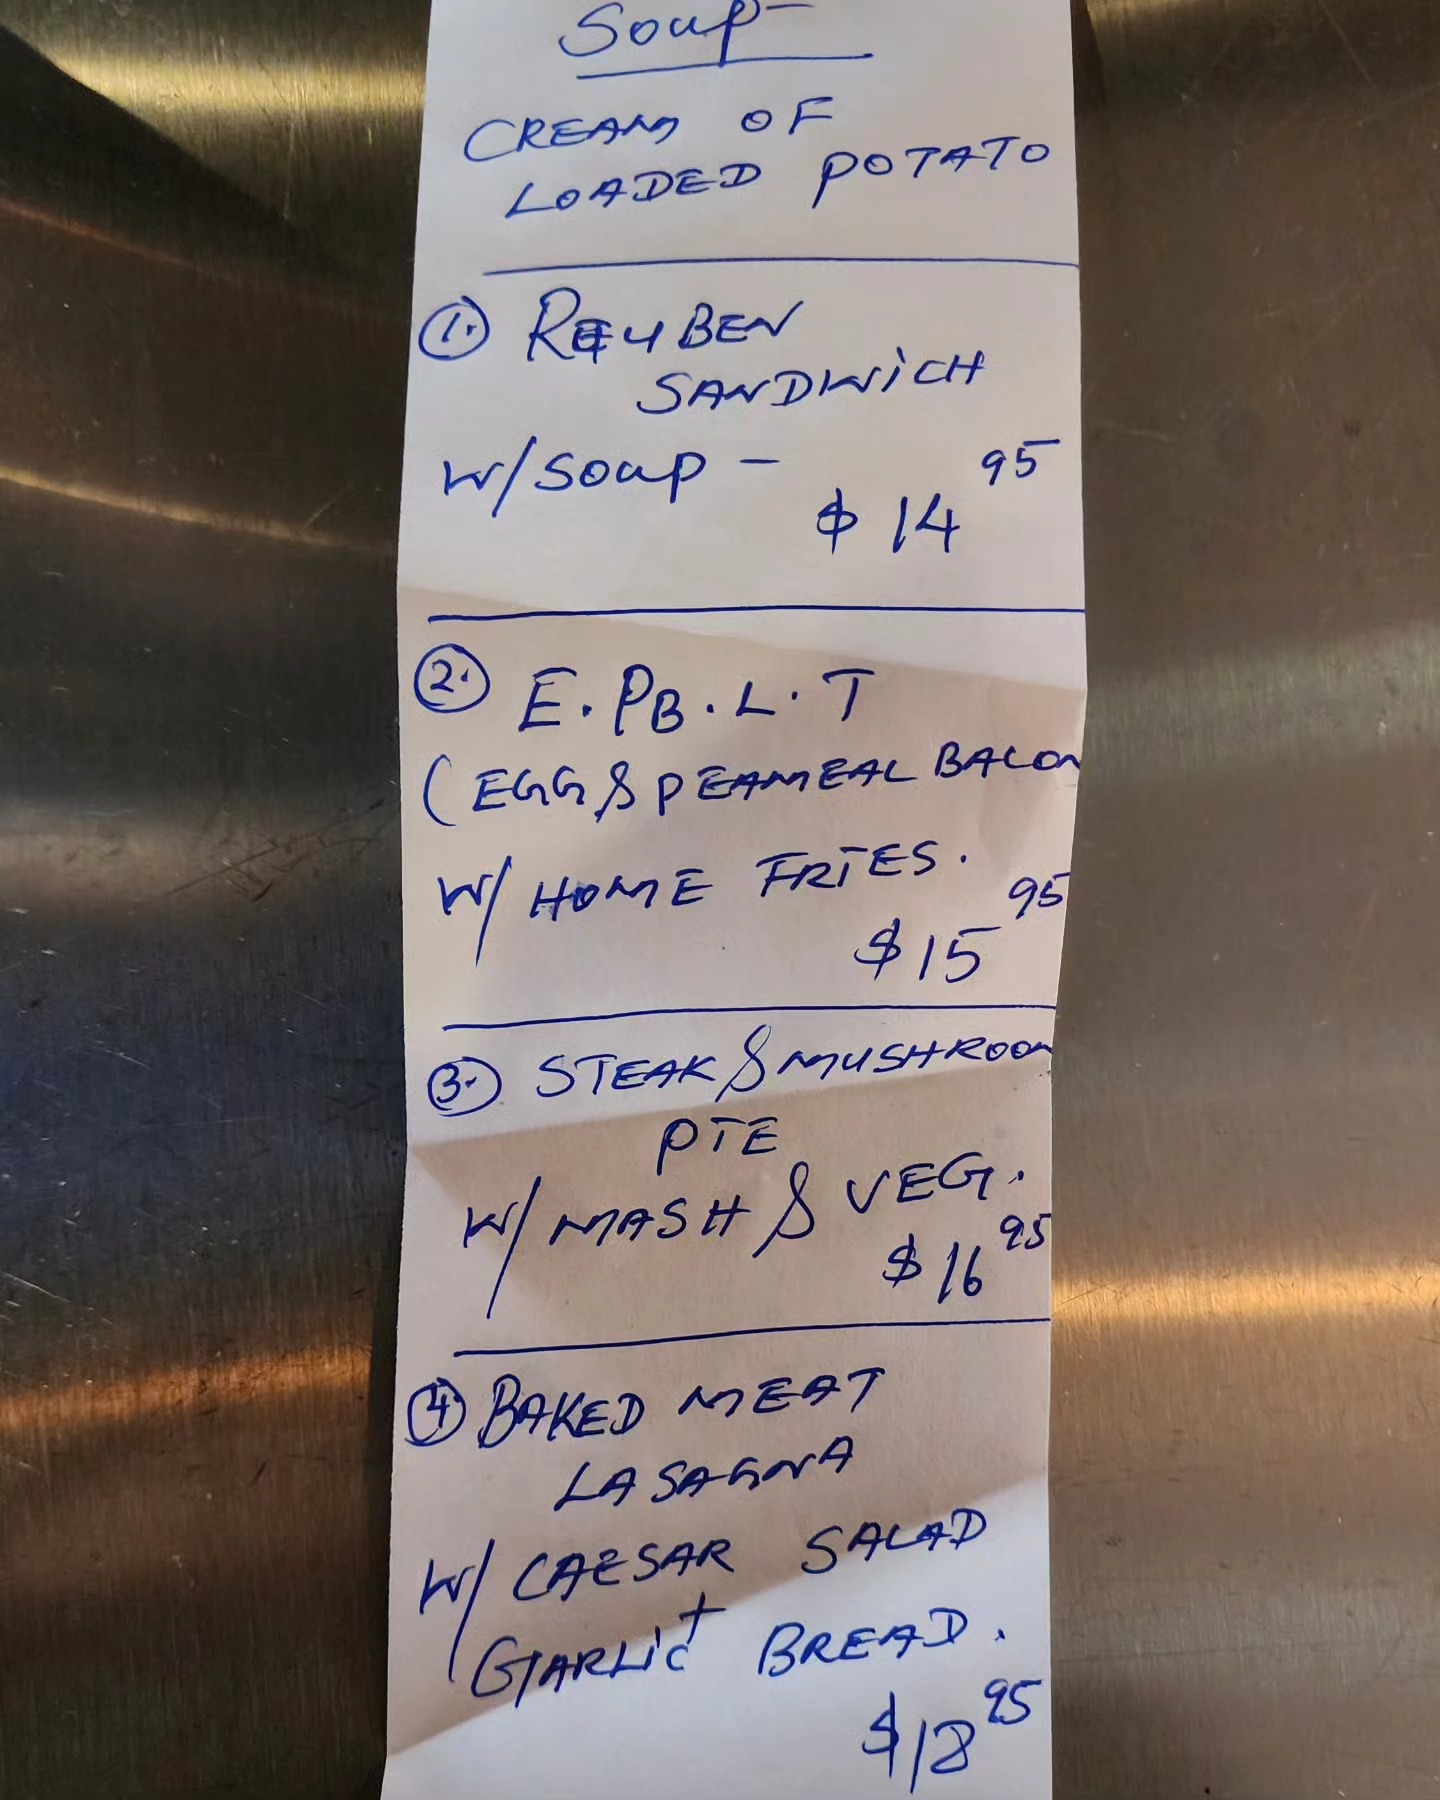 Soup-
CREAM OF
LOADED POTATO
1. REUBEN
SANDWICH
W/SOUP -
$ 14 95
2. E.PB.L.T
(EGG & PEAMEAL BACON
W/ HOME FRIES.
$15 95
3. STEAK & MUSHROOM
PIE
W/ MASH & VEG.
$16 95
4 BAKED MEAT
LASAGNA
W/ CAESAR SALAD
+
GARLIC BREAD.
$18 95